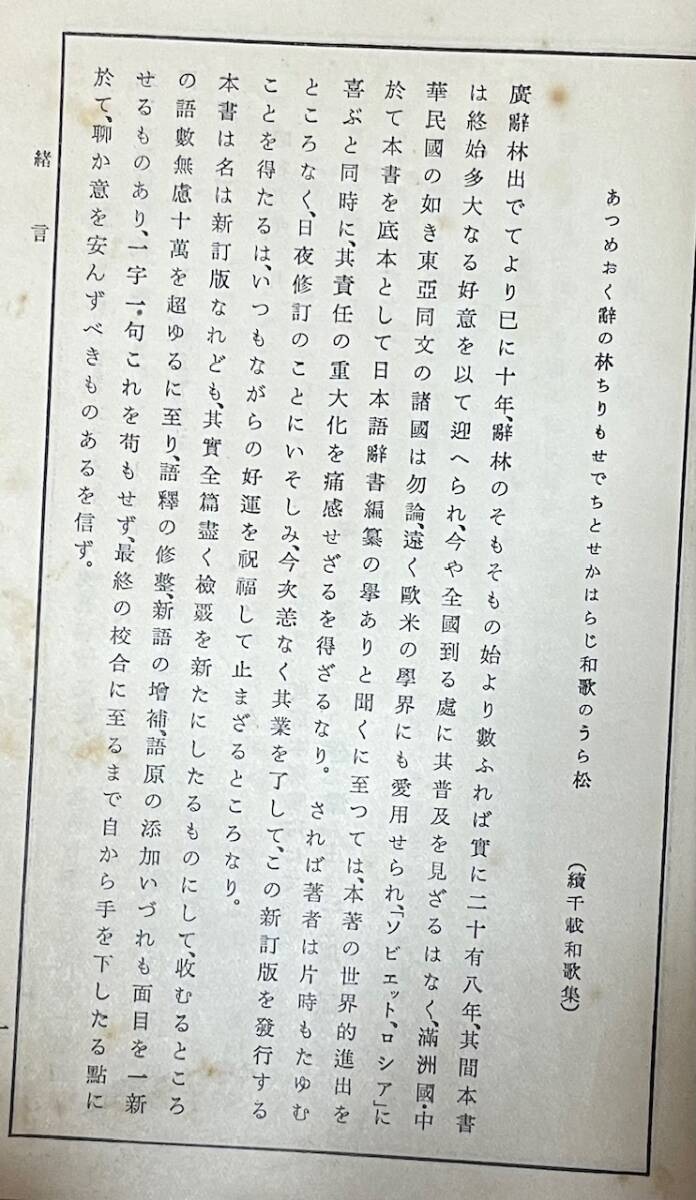 あつめおく辭の林ちりもせでちとせかはらじ和歌のうら松
（續千載和歌集）
廣辭林出でてより已に十年、辭林のそもそもの始より數ふれば實に二十有八年、其間本書
は終始多大なる好意を以て迎へられ、今や全國到る處に其普及を見ざるはなく、滿洲國・中
華民國の如き東亞同文の諸國は勿論、遠く歐米の學界にも愛用せられ、「ソビエット、ロシア」に
於て本書を底本として日本語辭書編纂の擧ありと聞くに至つては、本著の世界的進出を
喜ぶと同時に、其責任の重大化を痛感せざるを得ざるなり。されば著者は片時もたゆむ
ところなく、日夜修訂のことにいそしみ、今次恙なく其業を了して、この新訂版を發行する
ことを得たるは、いつもながらの好運を祝福して止まざるところなり。
本書は名は新訂版なれども、其實全篇盡く檢覈を新たにしたるものにして、收むるところ
の語數無慮十萬を超ゆるに至り、語釋の修整、新語の增補、語原の添加いづれも面目を一新
せるものあり、一字一句これを苟もせず、最終の校合に至るまで自から手を下したる點に
於て、聊か意を安んずべきものあるを信ず。
緒言
一